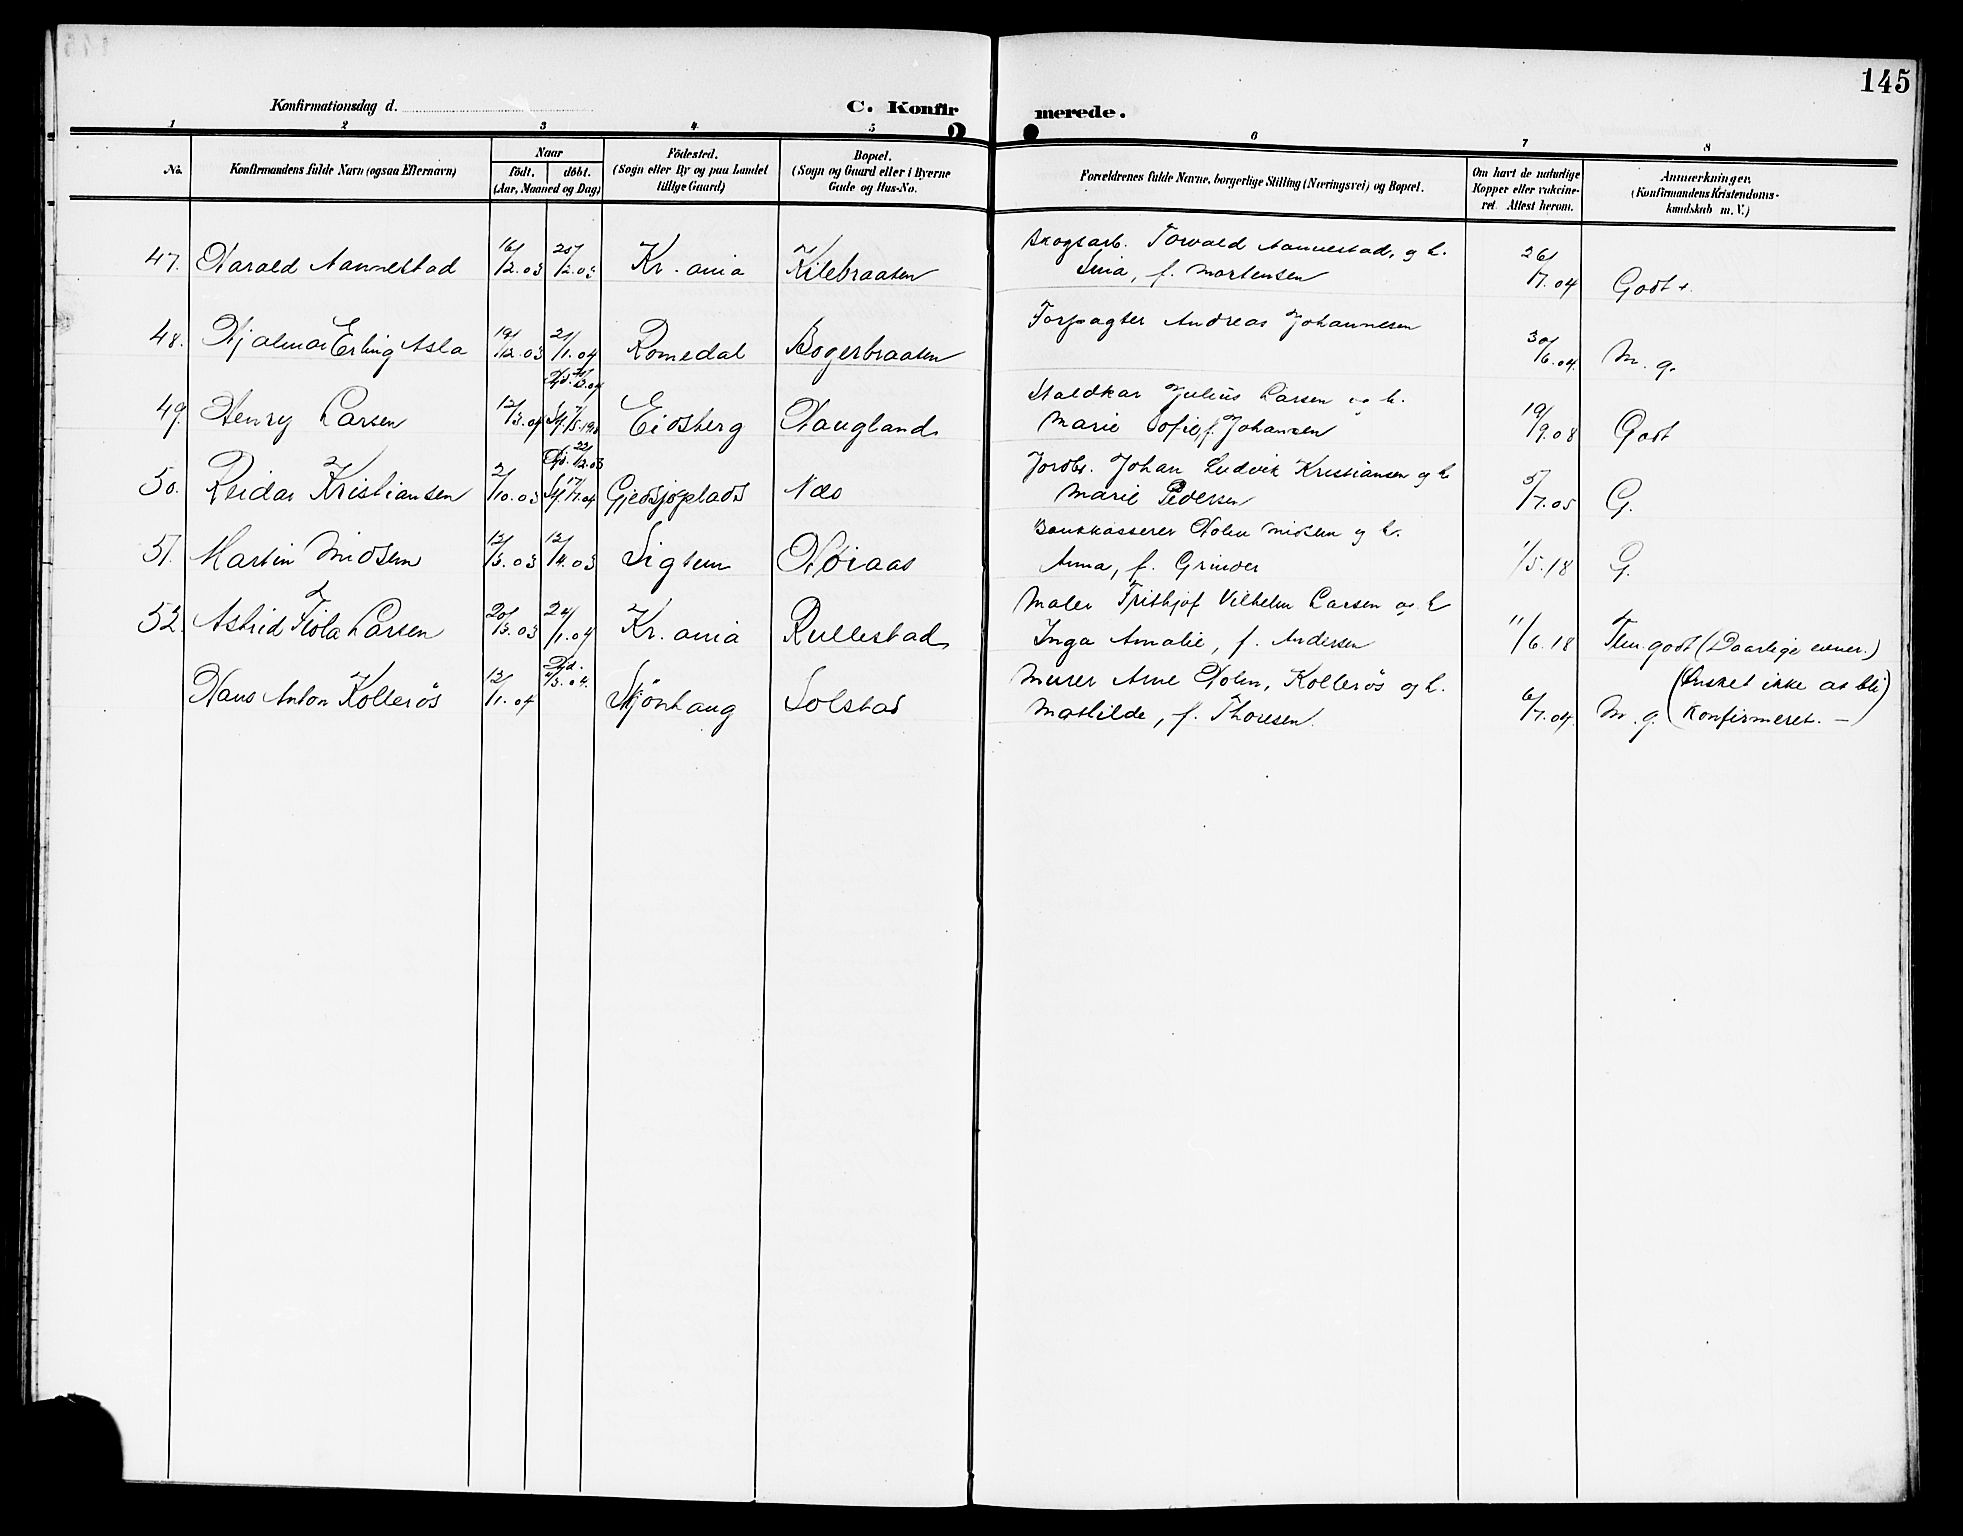 145
Konfirmationsdag d.
C. Konfir merede.
1 2 3 4 5 6 7 8
No.
Konfirmandens fulde Navn (ogsaa Efternavn)
Naar
födt. döbt.
(Aar, Maaned og Dag)
Födested.
(Sogn eller By og paa Landet
tillige Gaard)
Bopæl.
(Sogn og Gaard eller i Byerne
Gade og Hus-No.
Forældrenes fulde Navne, borgerlige Stilling (Næringsvei) og Bopæl.
Om havt de naturlige
Kopper eller vakcine-
ret. Attest herom.
Anmærkninger.
(Konfirmandens Kristendoms-
kundskab m. V.)
47. Harald Nannestad 16/12.03 Kr.ania Kilebraaten
Skogsarb. Torvald Nannestad, og h.
f. Mortensen 26/7.04 Godt +.
48. Hjalmar Erling Asla 19/12.03 21/1.04 Romedal Bogerbraaten
Forpagter Andreas Johannesen 30/6.04. M. g.
49. Henry Larsen 12/3.04 Eidsberg Haugland
Staldkar Julius Larsen og h.
Marie Sofie, f. Johansen 19/9.08 Godt
50. Reidar Kristiansen 2/10.03 Hjd. 22/12.03 17/7.04 Gjedsjøplads Næs
Jordbr. Johan Ludvik Kristiansen og h
Marie Pedersen 5/7.05 G.
51. Martin Midsem 12/3.03 12/4.03 Sigtun Høiaas
Bankkasserer Holm Midsem og h.
Anna, f. Grinder 1/5.18 G.
52. Astrid Fiola Larsen 20/3.03 24/1.04 Kr.ania Rullestad
Maler Frithjof Vilhelm Larsen og h
Inga Amalie, f. Andersen 11/6.18 Tem. godt (Daarlige evner.)
Hans Anton Kollerös 12/1.04 Hjd. 4/3.04. Skjönhaug Solstad
Murer Arne Holm, Kollerös og h.
Mathilde, f. Thoresen. 6/7.04. M. g. (Ønsket ikke at bli
konfirmeret. —)